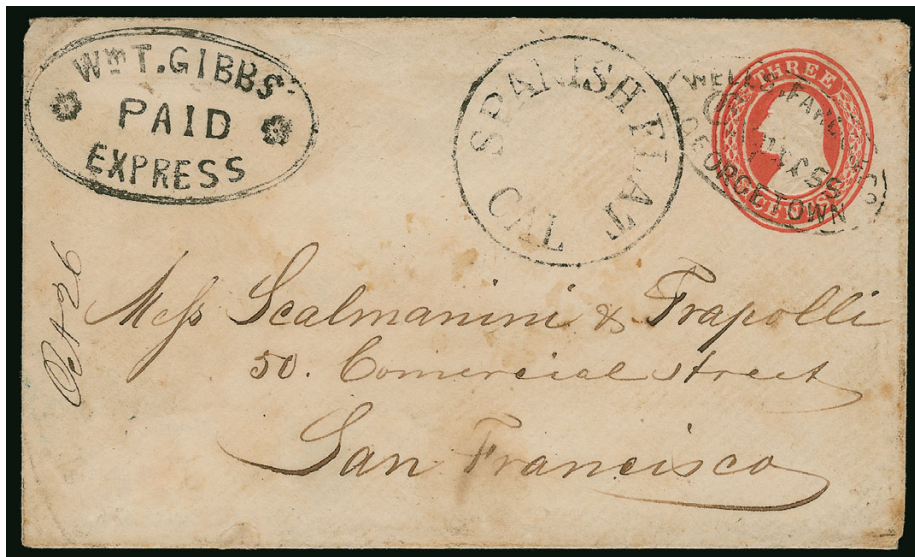 Wm T. GIBBS'
PAID
EXPRESS
SPANISH FLAT
CAL
THREE
CENTS
WELLS, FARGO & CO
EXPRESS
GEORGETOWN
Oct 26
Mess Scalmanini & Frapolli
50. Comercial street
San Francisco